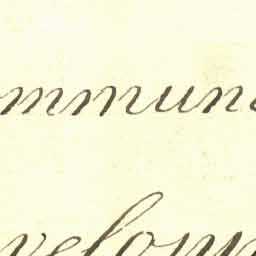 ommuni
velopm